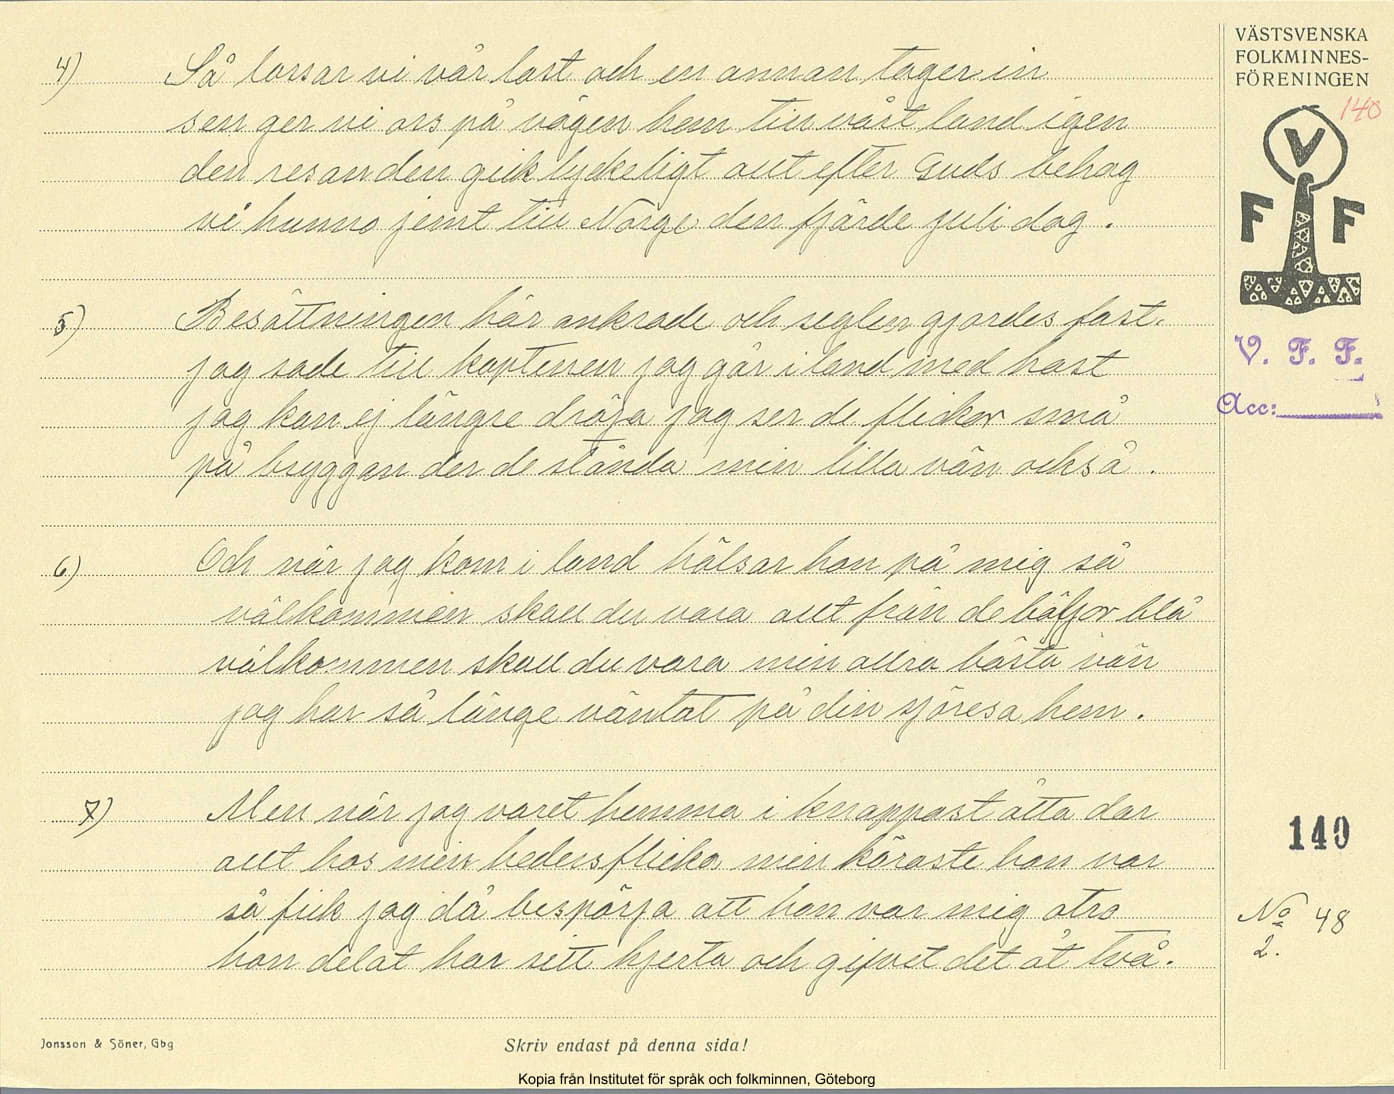 VÄSTSVENSKA
FOLKMINNES-
FÖRENINGEN
140
V
F F
V. F. F.
Acc:
4) Så lossar vi vår last och en annan tager in
sen ger vi oss på vägen hem till vårt land igen
den resanden gick lyckeligt allt efter Guds behag
vi hunno jemt till Norge den fjärde juli dag.
5) Besättningen här ankrade och seglen gjordes fast.
jag sade till kaptenen jag går i land med hast
jag kan ej längre dröja jag ser de flickor små
på bryggan der de stånda min lilla vän också.
6) Och när jag kom i land hälsar hon på mig så
välkommen skall du vara allt från de böljor blå
välkommen skall du vara min allra bästa vän
jag har så länge väntat på din sjöresa hem.
7) Men när jag varet hemma i knappast åtta dar
allt hos min hedersflicka min käraste hon var
så fick jag då bespörja att hon var mig otro
hon delat har sitt hjerta och gifvet det åt två.
140
No 48
2.
Jonsson & Söner, Gbg
Skriv endast på denna sida!
Kopia från Institutet för språk och folkminnen, Göteborg